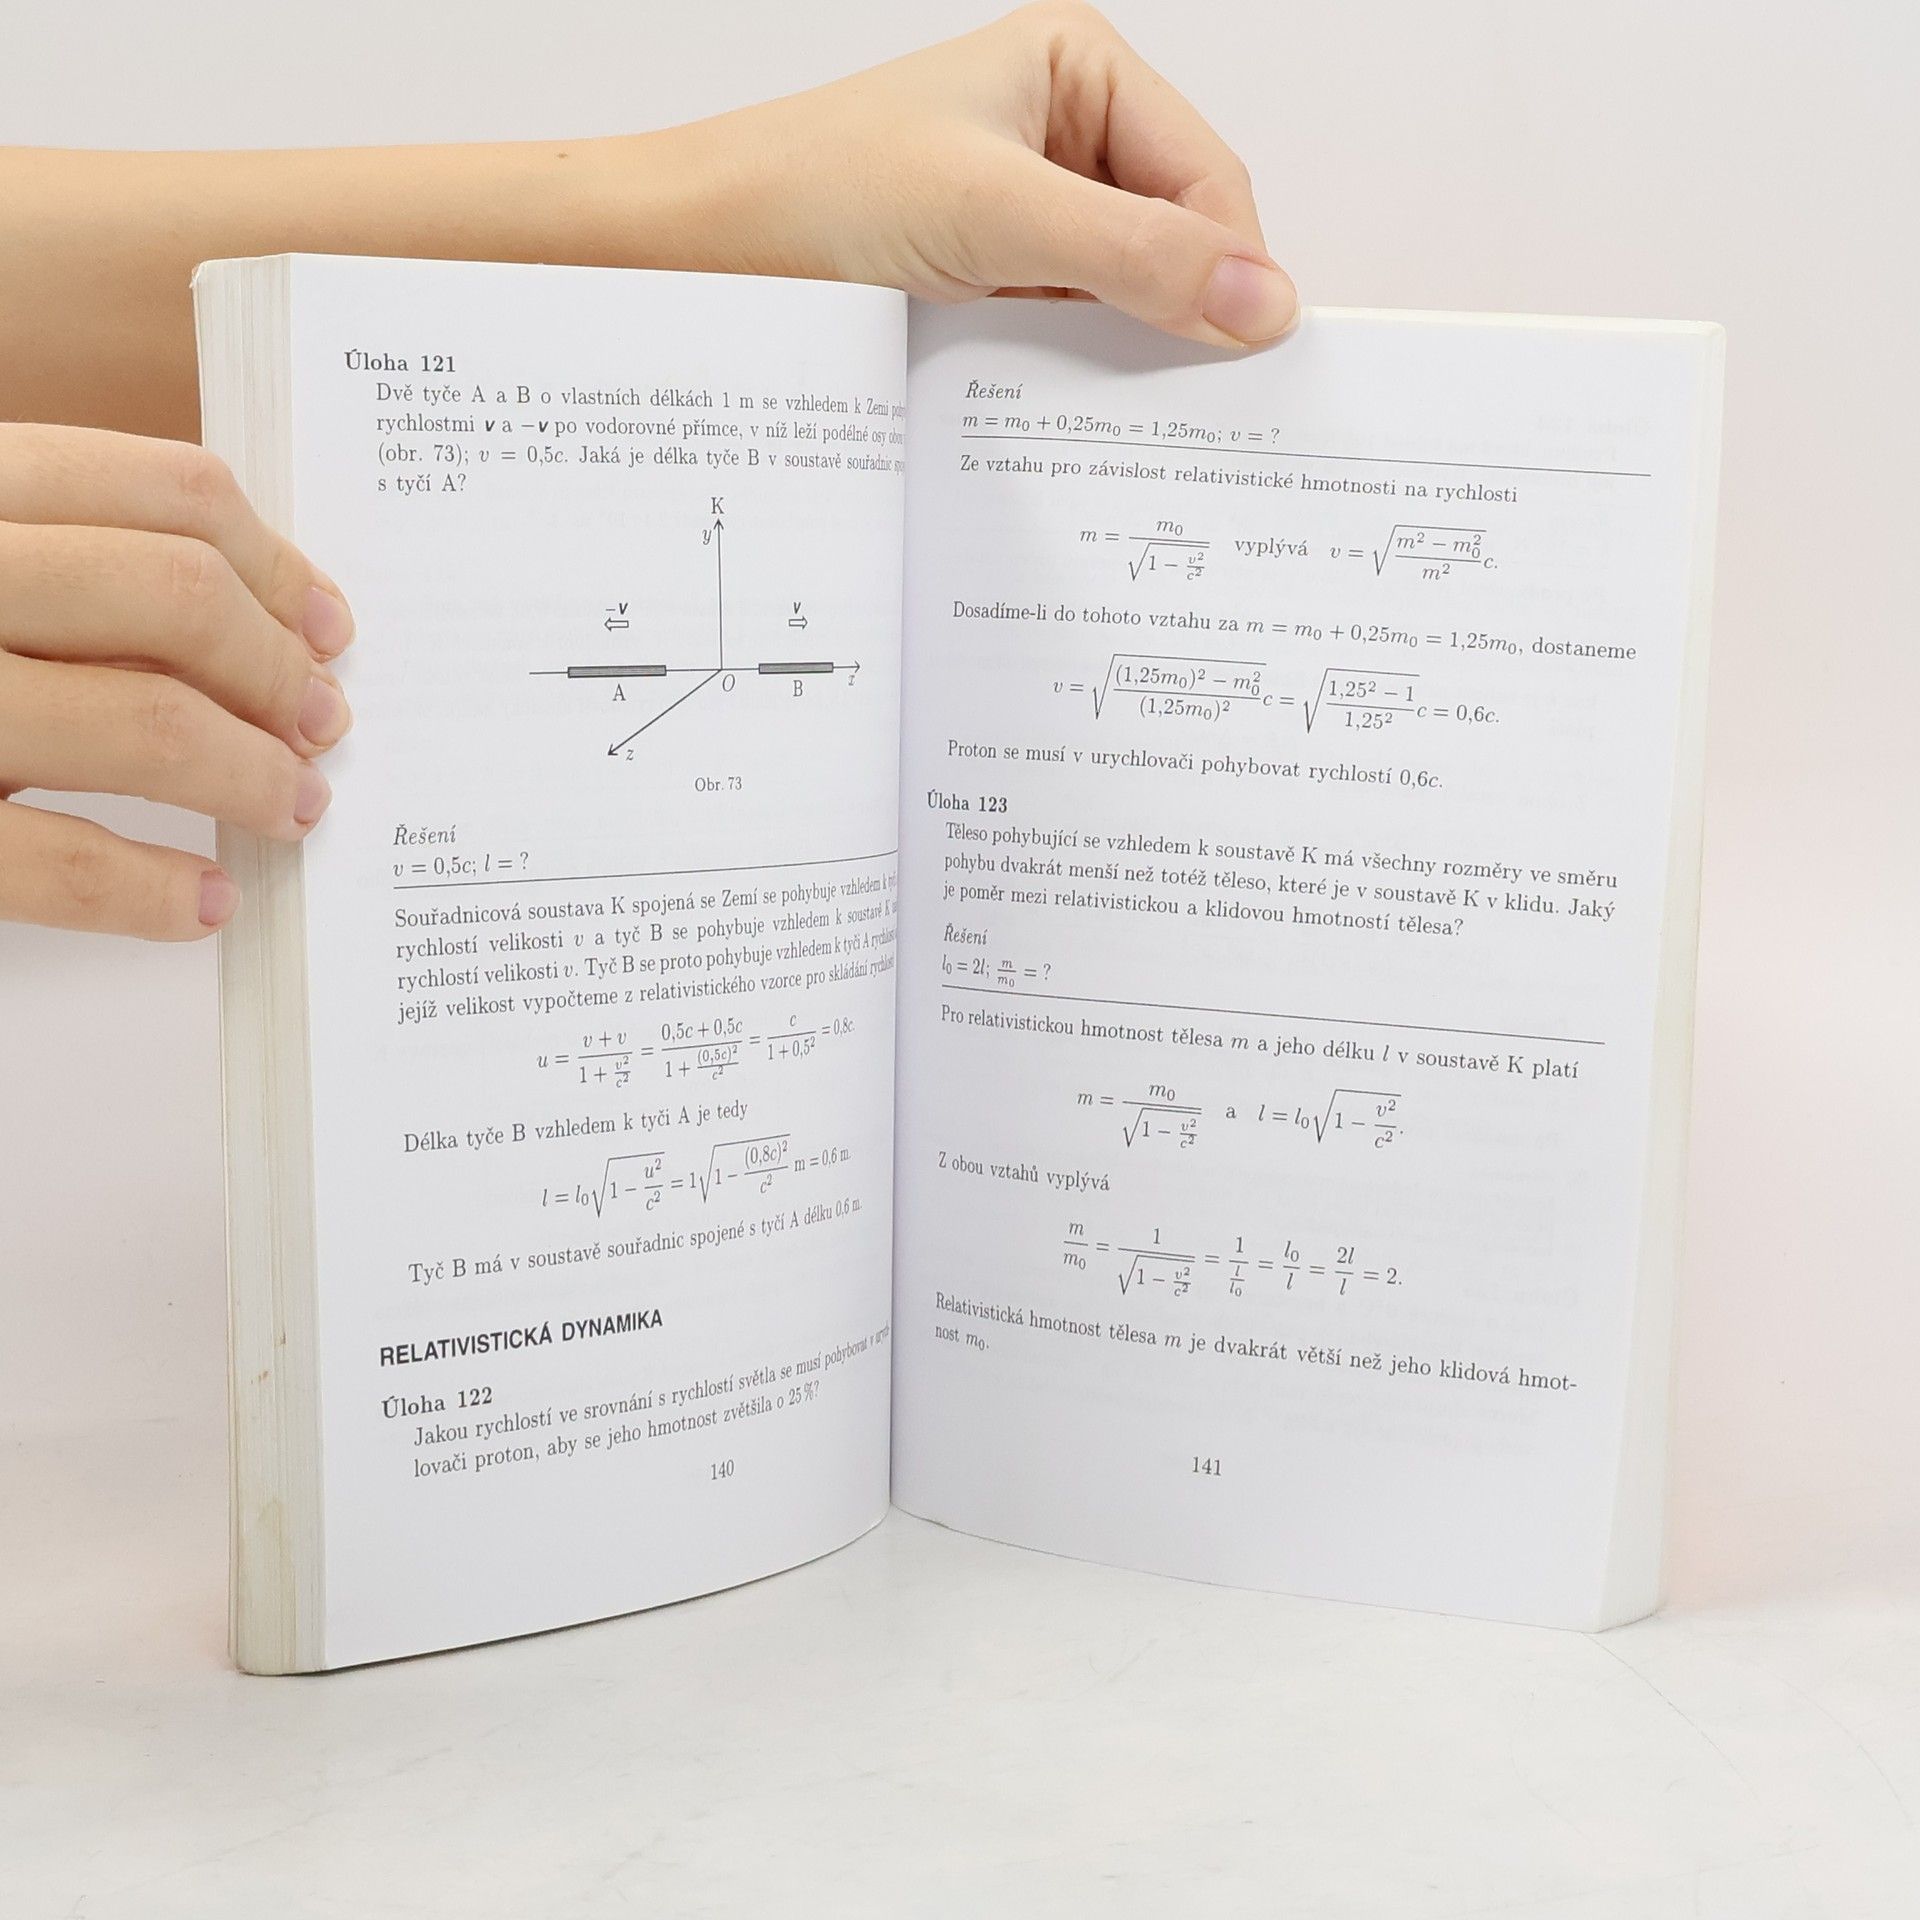 Úloha 121
Dvě tyče A a B o vlastních délkách 1 m se vzhledem k Zemi
rychlostmi v a −v po vodorovné přímce, v níž leží podélné osy
(obr. 73); v = 0,5c. Jaká je délka tyče B v soustavě souřadnic
s tyčí A?
K
y
−v v
A O B x
z
Obr. 73
Řešení
v = 0,5c; l = ?
Souřadnicová soustava K spojená se Zemí se pohybuje vzhledem k
rychlostí velikosti v a tyč B se pohybuje vzhledem k soustavě K
rychlostí velikosti v. Tyč B se proto pohybuje vzhledem k tyči A
jejíž velikost vypočteme z relativistického vzorce pro skládání
u = \frac{v + v}{1 + \frac{v^2}{c^2}} = \frac{0,5c + 0,5c}{1 + \frac{(0,5c)^2}{c^2}} = \frac{c}{1 + 0,5^2} = 0,8c.
Délka tyče B vzhledem k tyči A je tedy
l = l_0 \sqrt{1 − \frac{u^2}{c^2}} = 1 \sqrt{1 − \frac{(0,8c)^2}{c^2}} m = 0,6 m.
Tyč B má v soustavě souřadnic spojené s tyčí A délku 0,6 m.
RELATIVISTICKÁ DYNAMIKA
Úloha 122
Jakou rychlostí ve srovnání s rychlostí světla se musí pohybovat v urych-
lovači proton, aby se jeho hmotnost zvětšila o 25 %?
140
Řešení
m = m_0 + 0,25m_0 = 1,25m_0; v = ?
Ze vztahu pro závislost relativistické hmotnosti na rychlosti
m = \frac{m_0}{\sqrt{1 − \frac{v^2}{c^2}}} vyplývá v = \sqrt{\frac{m^2 − m_0^2}{m^2}} c.
Dosadíme-li do tohoto vztahu za m = m_0 + 0,25m_0 = 1,25m_0, dostaneme
v = \sqrt{\frac{(1,25m_0)^2 − m_0^2}{(1,25m_0)^2}} c = \sqrt{\frac{1,25^2 − 1}{1,25^2}} c = 0,6c.
Proton se musí v urychlovači pohybovat rychlostí 0,6c.
Úloha 123
Těleso pohybující se vzhledem k soustavě K má všechny rozměry ve směru
pohybu dvakrát menší než totéž těleso, které je v soustavě K v klidu. Jaký
je poměr mezi relativistickou a klidovou hmotností tělesa?
Řešení
l_0 = 2l; \frac{m}{m_0} = ?
Pro relativistickou hmotnost tělesa m a jeho délku l v soustavě K platí
m = \frac{m_0}{\sqrt{1 − \frac{v^2}{c^2}}} a l = l_0 \sqrt{1 − \frac{v^2}{c^2}}.
Z obou vztahů vyplývá
\frac{m}{m_0} = \frac{1}{\sqrt{1 − \frac{v^2}{c^2}}} = \frac{1}{\frac{l}{l_0}} = \frac{l_0}{l} = \frac{2l}{l} = 2.
Relativistická hmotnost tělesa m je dvakrát větší než jeho klidová hmot-
nost m_0.
141